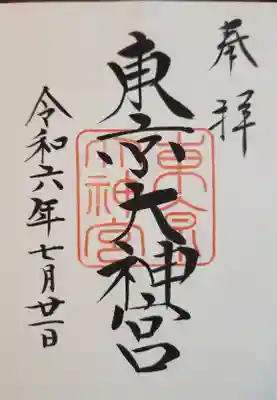 奉拝
東京大神宮
東京大神宮
令和六年七月廿一日